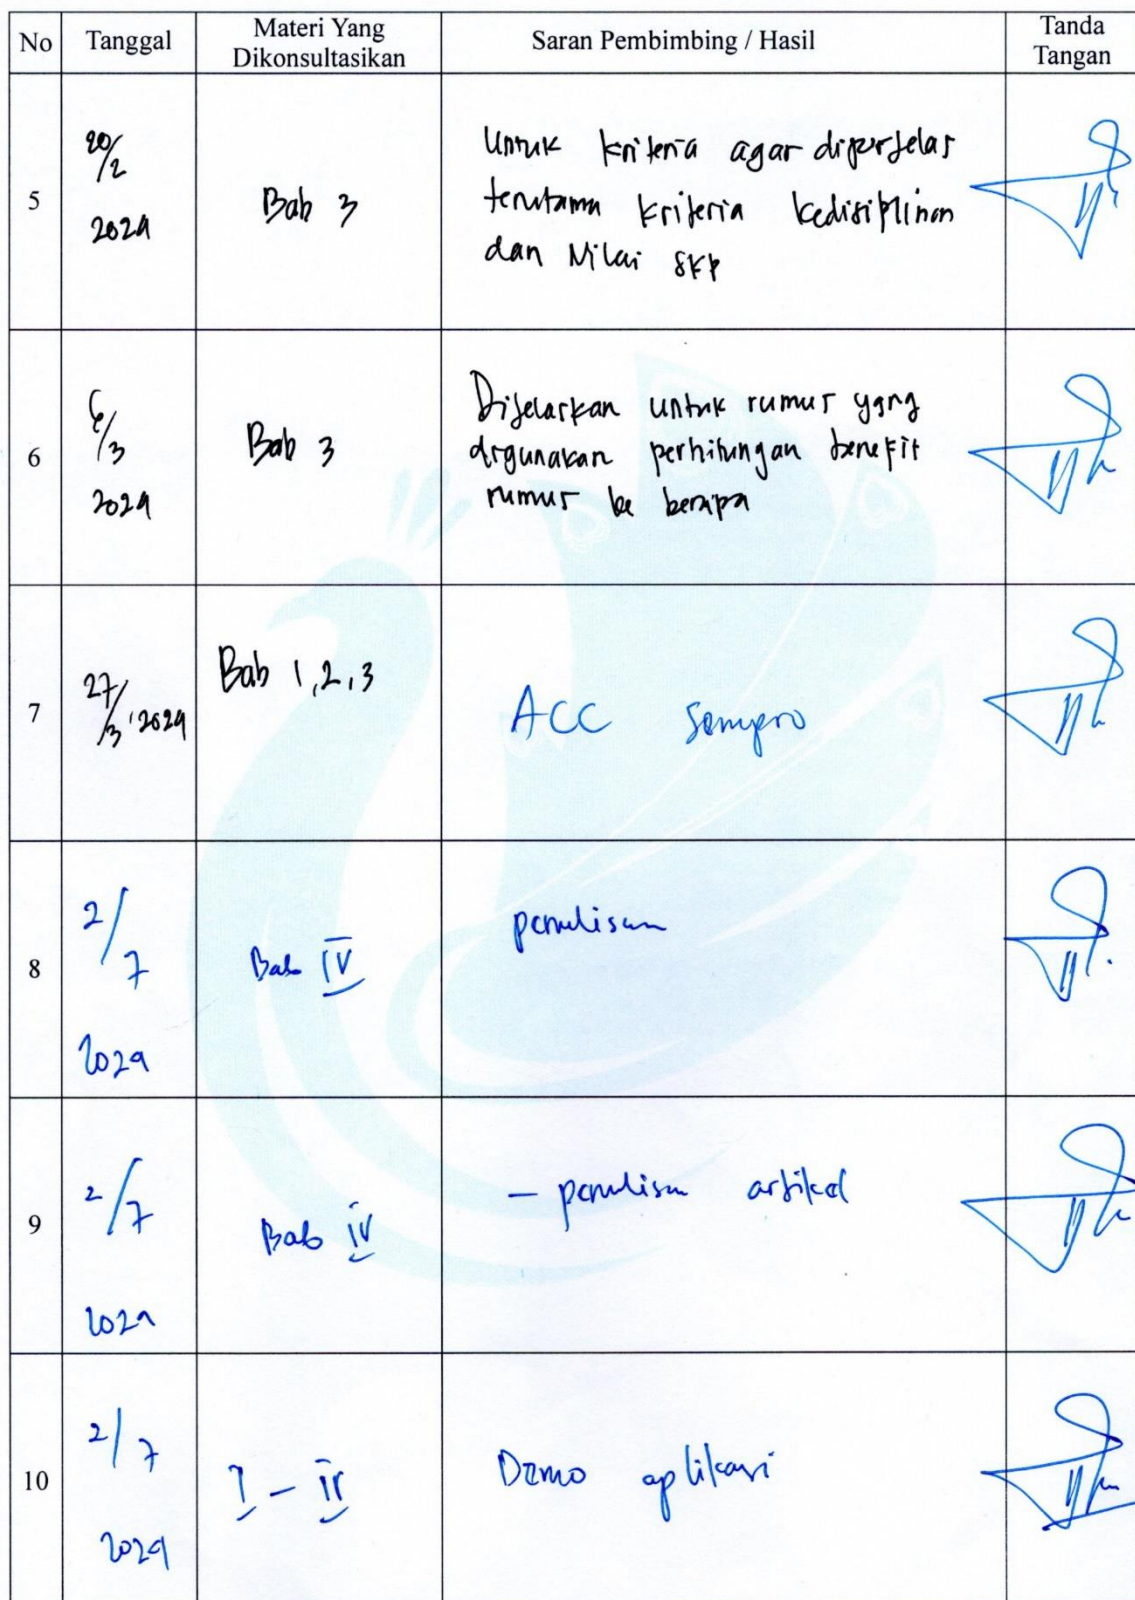 No Tanggal Materi Yang Dikonsultasikan Saran Pembimbing / Hasil Tanda Tangan
5
20/2
2024
Bab 3
Untuk kriteria agar diperjelas
terutama kriteria kedisiplinan
dan Nilai SKP
6
6/3
2024
Bab 3
Dijelaskan untuk rumus yang
digunakan perhitungan benefit
rumus ke berapa
7
27/3 2024
Bab 1,2,3
ACC Sempro
8
2/7
2024
Bab IV
penulisan
9
2/7
2024
Bab IV
- penulisan artikel
10
2/7
2024
I - IV
Demo aplikasi